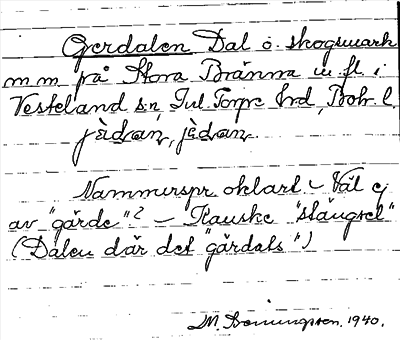 Gerdalen Dal o. skogsmark
m m på Stora Bränna m. fl. i
Vesteland sn, Inl. Torpe hrd, Boh. l.
jèdran, jèdran.
Namnurspr. oklart. – Väl ej
av "gärde"? – Kanske "stängsel"
(Dalen där det "gärdats")
M. 1940.